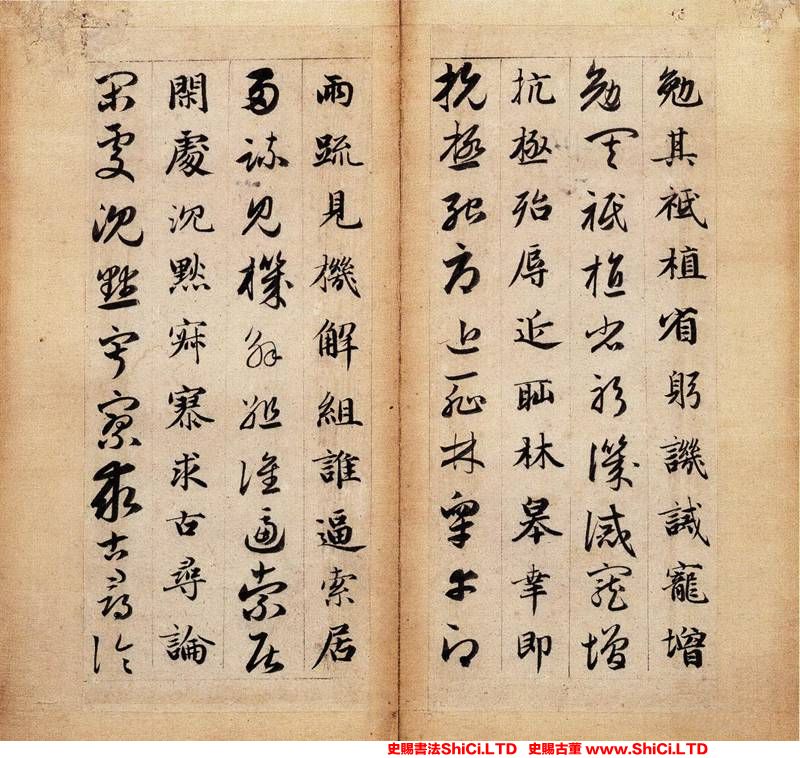 勉其祗植省躬譏誡寵增
勉其祗植省躬譏誡寵增
抗極殆辱近耻林皋幸即
抗極殆辱近耻林皋幸即
兩疏見機解組誰逼索居
兩疏見機解組誰逼索居
閑處沉默寂寥求古尋論
閑處沉默寂寥求古尋論
史賜書法ShiCi.LTD 史賜古董 www.ShiCi.LTD